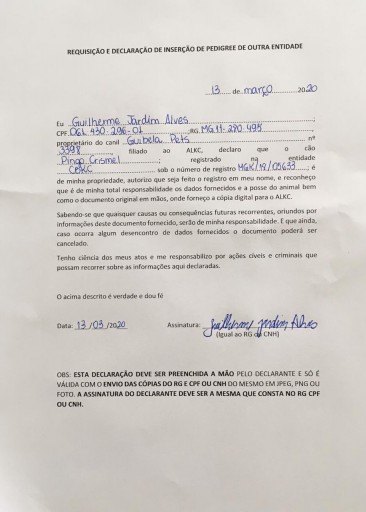 REQUISIÇÃO E DECLARAÇÃO DE INSERÇÃO DE PEDIGREE DE OUTRA ENTIDADE
13 de março 2020
Eu Guilherme Jardim Alves
CPF 061.430.296-01 RG MG11-280.495
proprietário do canil Guibela Pets nº
3398 filiado ao ALKC, declaro que o cão
Pingo Crismel; registrado na entidade
CBKC sob o número de registro MGK/19/05633; é
de minha propriedade, autorizo que seja feito o registro em meu nome, e reconheço
que é de minha total responsabilidade os dados fornecidos e a posse do animal bem
como o documento original em mãos, onde forneço a cópia digital para o ALKC.
Sabendo-se que quaisquer causas ou consequências futuras recorrentes, oriundos por
informações deste documento fornecido, serão de minha responsabilidade. E que ainda,
caso ocorra algum desencontro de dados fornecidos o documento poderá ser
cancelado.
Tenho ciência dos meus atos e me responsabilizo por ações cíveis e criminais que
possam recorrer sobre as informações aqui declaradas.
O acima descrito é verdade e dou fé
Data: 13/03/2020 Assinatura: Guilherme Jardim Alves
(Igual ao RG ou CNH)
OBS: ESTA DECLARAÇÃO DEVE SER PREENCHIDA A MÃO PELO DECLARANTE E SÓ É
VÁLIDA COM O ENVIO DAS CÓPIAS DO RG E CPF OU CNH DO MESMO EM JPEG, PNG OU
FOTO. A ASSINATURA DO DECLARANTE DEVE SER A MESMA QUE CONSTA NO RG CPF
OU CNH.